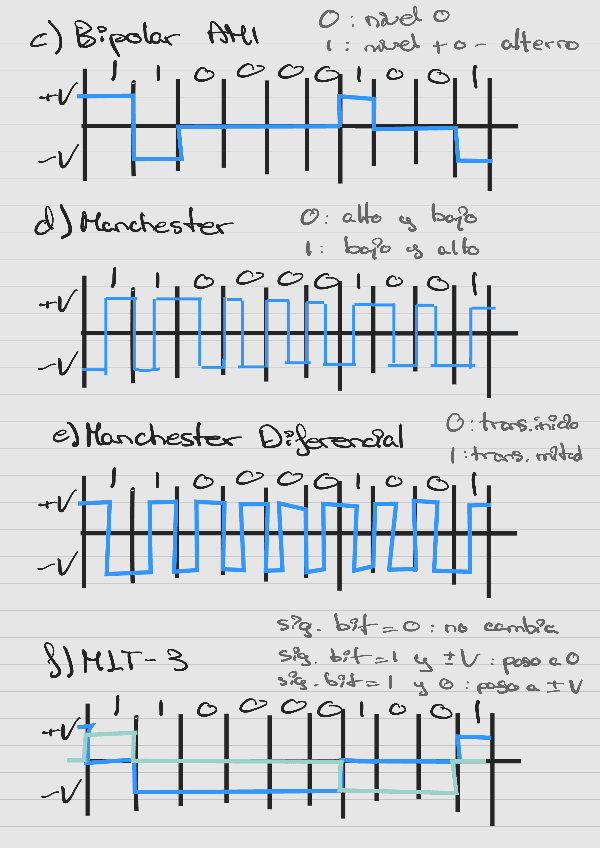 c) Bipolar AMI
0: nivel 0
1: nivel + o - alterno
1 1 0 0 0 0 1 0 0 1
+V
-V
d) Manchester
0: alto y bajo
1: bajo y alto
1 1 0 0 0 0 1 0 0 1
+V
-V
e) Manchester Diferencial
0: trans. inicio
1: trans. mitad
1 1 0 0 0 0 1 0 0 1
+V
-V
f) MLT-3
sig. bit = 0 : no cambia
sig. bit = 1 y ±V : paso a 0
sig. bit = 1 y 0 : paso a ±V
1 1 0 0 0 0 1 0 0 1
+V
-V